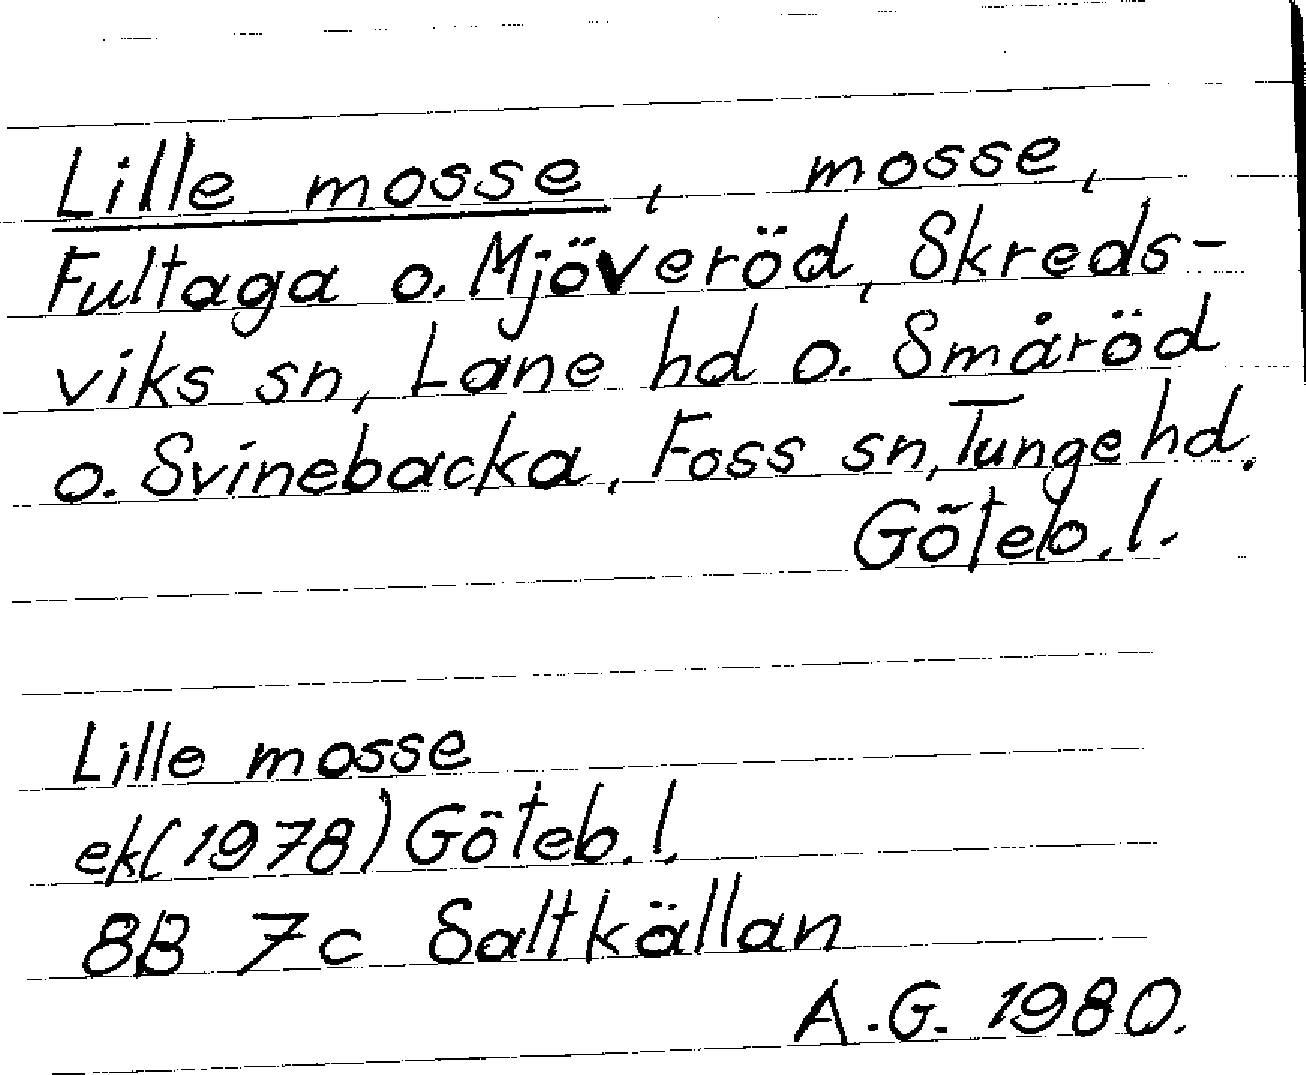 Lille mosse, mosse,
Fultaga o. Mjöveröd, Skreds-
viks sn, Lane hd o. Småröd
o. Svinebacka, Foss sn, Tunge hd.
Göteb. l.
Lille mosse
ek (1978) Göteb. l.
8B 7c Saltkällan
A.G. 1980.